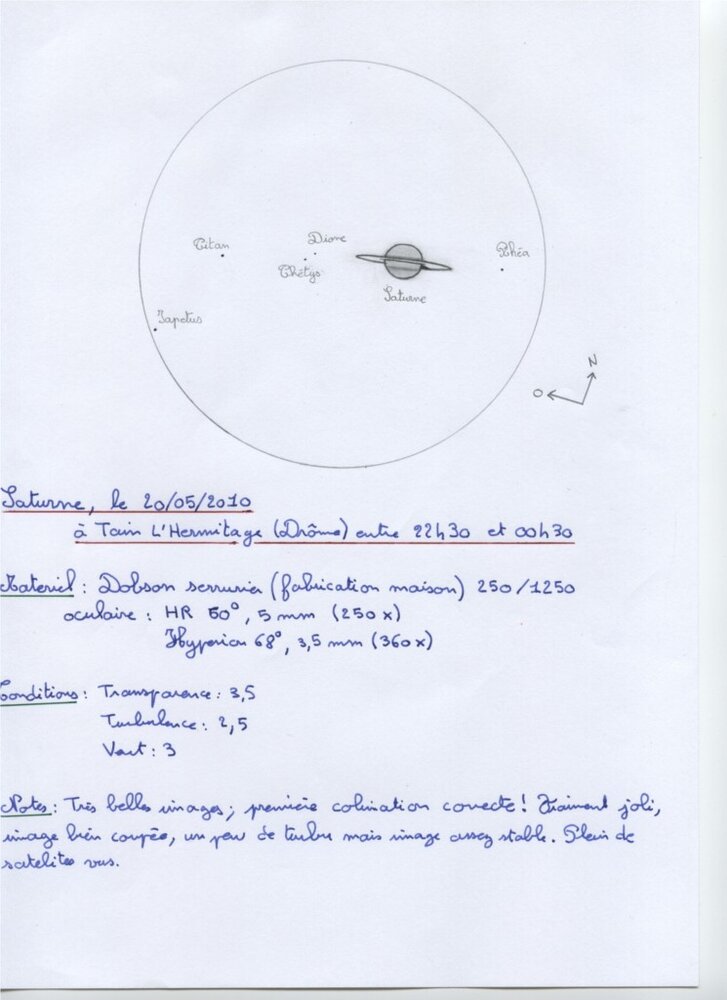 Titan
Dione
Thétys
Rhéa
Saturne
Japetus
N
O
Saturne, le 20/05/2010
à Tain L'Hermitage (Drôme) entre 22h30 et 00h30
Materiel : Dobson serrurier (fabrication maison) 250/1250
oculaire : HR 60°, 5 mm (250x)
Hyperion 68°, 3,5 mm (360x)
Conditions : Transparence : 3,5
Turbulence : 2,5
Vent : 3
Notes : Très belles images ; première colimation correcte ! Vraiment joli,
image bien coupée, un peu de turbu mais image assez stable. Plein de
satelites vus.